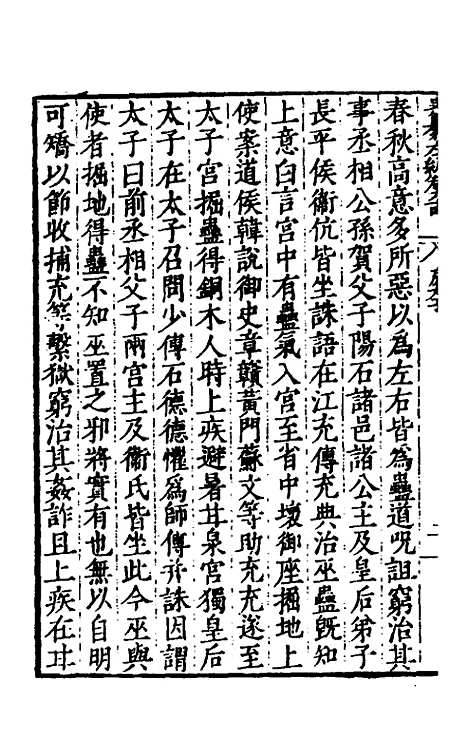 春秋高意多所惡以為左右皆為蠱道呪詛窮治其
事丞相公孫賀父子陽石諸邑諸公主及皇后弟子
長平侯衞伉皆坐誅語在江充傳充典治巫蠱旣知
上意白言宮中有蠱氣入宮至省中壞御座掘地上
使案道侯韓說御史章贛黃門蘇文等助充充遂至
太子宮掘蠱得銅木人時上疾避暑甘泉宮獨皇后
太子在太子召問少傅石德德懼爲師傅并誅因謂
太子曰前丞相父子兩宮主及衞氏皆坐此今巫與
使者掘地得蠱不知巫置之邪將實有也無以自明
可矯以節收捕充等繫獄窮治其姦詐且上疾在甘